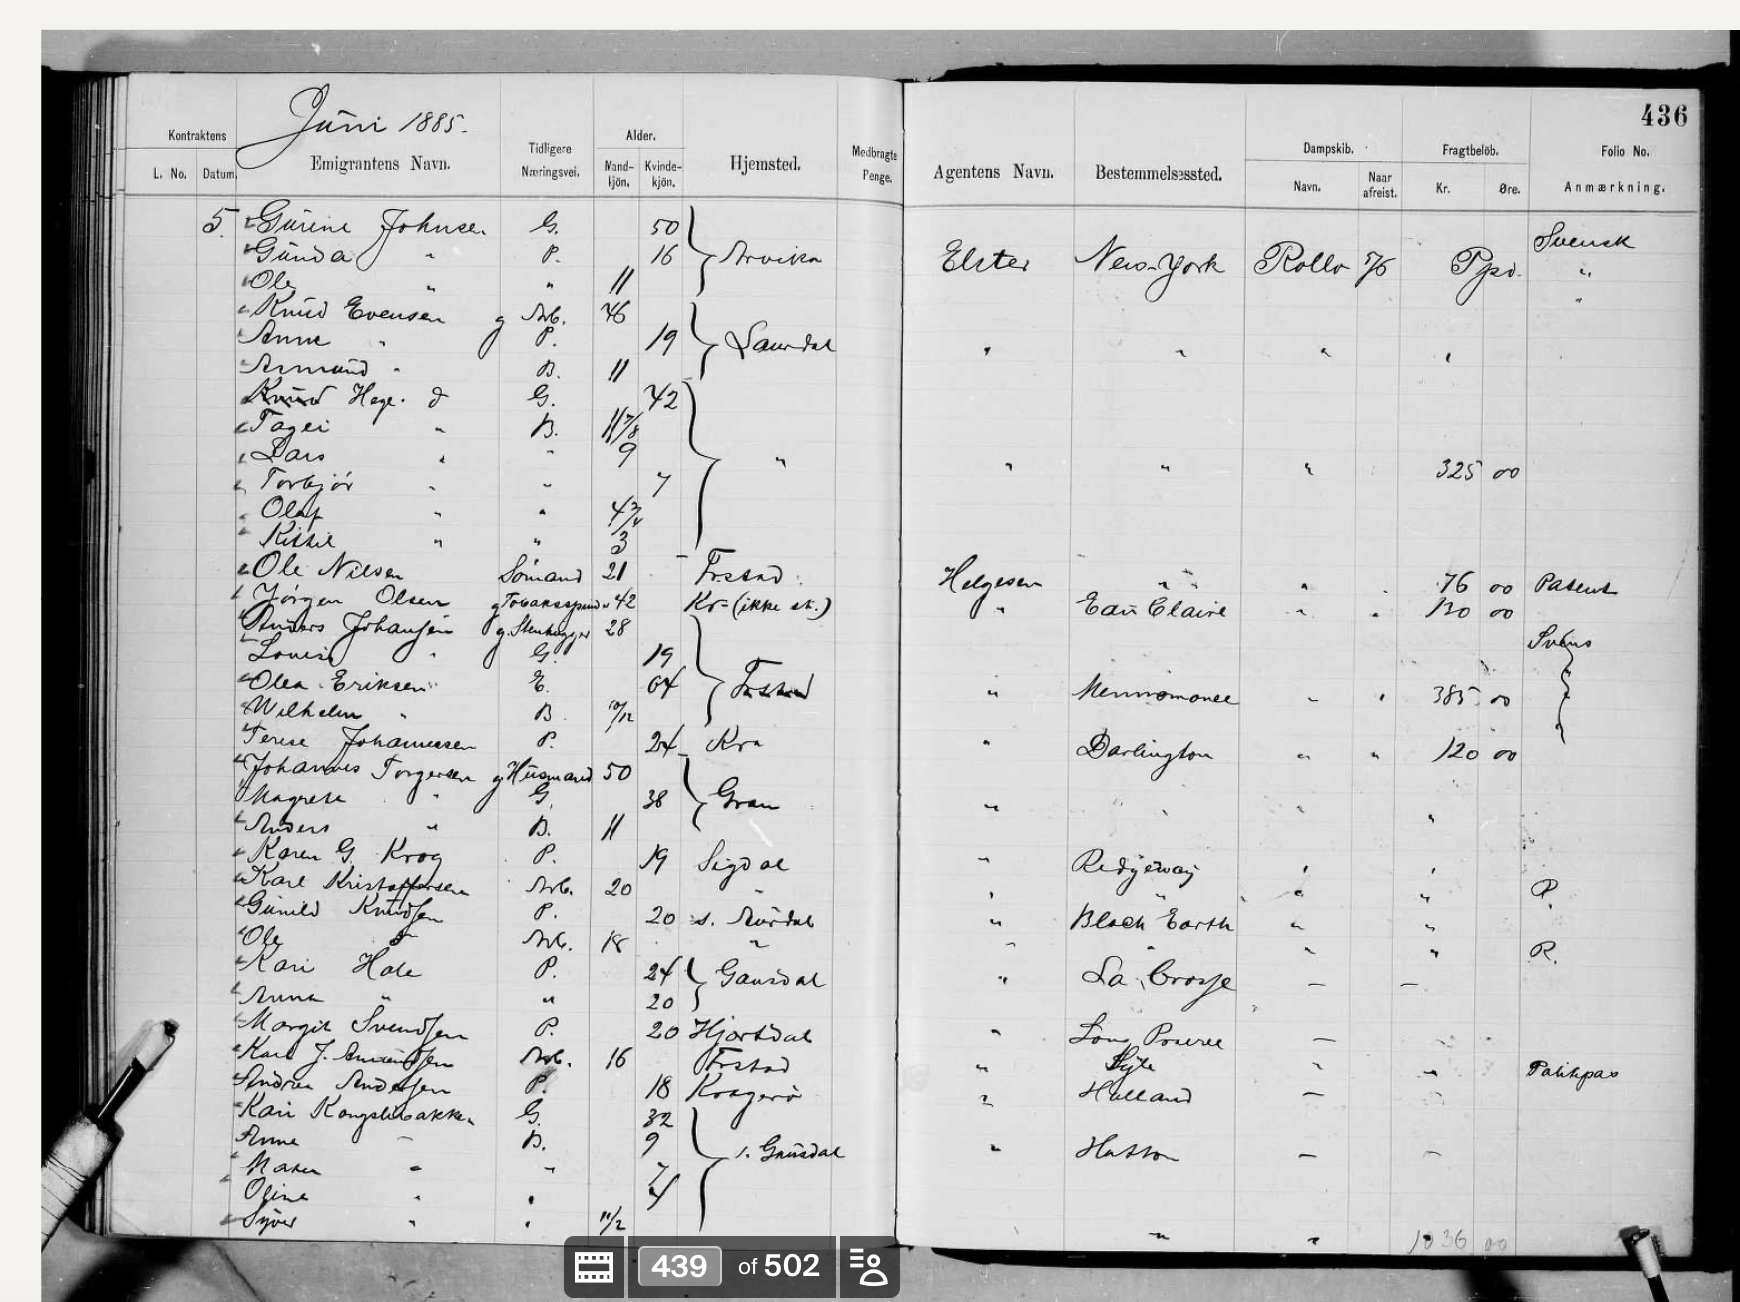 436
Juni 1885.
Kontraktens
L. No. Datum.
Emigrantens Navn.
Tidligere Næringsvei.
Alder.
Mand-kjön. Kvinde-kjön.
Hjemsted.
Medbragte Penge.
Agentens Navn.
Bestemmelsessted.
Dampskib.
Navn. Naar afreist.
Fragtbelöb.
Kr. Øre.
Folio No.
Anmærkning.
5. Gurine Johnsen G. 50 Arvika Elster New-York Rollo 5/6 Ppd. Svensk
Gunda " P. 16 "
Ole " " 11 "
Knud Evensen g Arb. 46
Anne " P. 19 Laurdal " " " "
Aamund " B. 11
Knud Hege d G. 42
Tagei " B. 11 7/8
Lars " " 9 " " " " 325 00
Torbjör " " 7
Olaf " " 4 3/4
Kittil " " 3
Ole Nilsen Sömand 21 Frstad Helgesen " " " 76 00 Patent
Jörgen Olsen g Tobaksspind. 42 Kr- (ikke st.) " Eau Claire " " 130 00
Anders Johansen g. Stenhugger 28 Svens
Lovise " G. 19
Olea Eriksen E. 64 Frstad " Mennomonee " " 385 00
Wilhelm " B. 10/12
Terese Johannessen P. 24 Kra " Darlington " " 120 00
Johannes Torgersen g Husmand 50
Magrete " G. 38 Gran " " " "
Anders " B. 11
Karen G. Krog P. 19 Sigdal " Redgeway " "
Karl Kristoffersen Arb. 20 " " " " " R.
Gunild Knudsen P. 20 s. Aurdal " Black Earth " "
Ole " Arb. 18 " " " " " R.
Kari Hole P. 24 Gausdal " La Crosse — —
Anna " " 20
Margit Svendsen P. 20 Hjartdal " Lone —
Karl J. Amundsen Arb. 16 Frstad " Lyle " " Politipas
Andrea Andersen P. 18 Kragerö " Holland —
Kari Kongslibakken G. 32
Anne — B. 9 s. Gausdal " Hatton — —
Maren " " 7
Oline " " 4
Syver " " 11/2 " " 1036 00
439 of 502